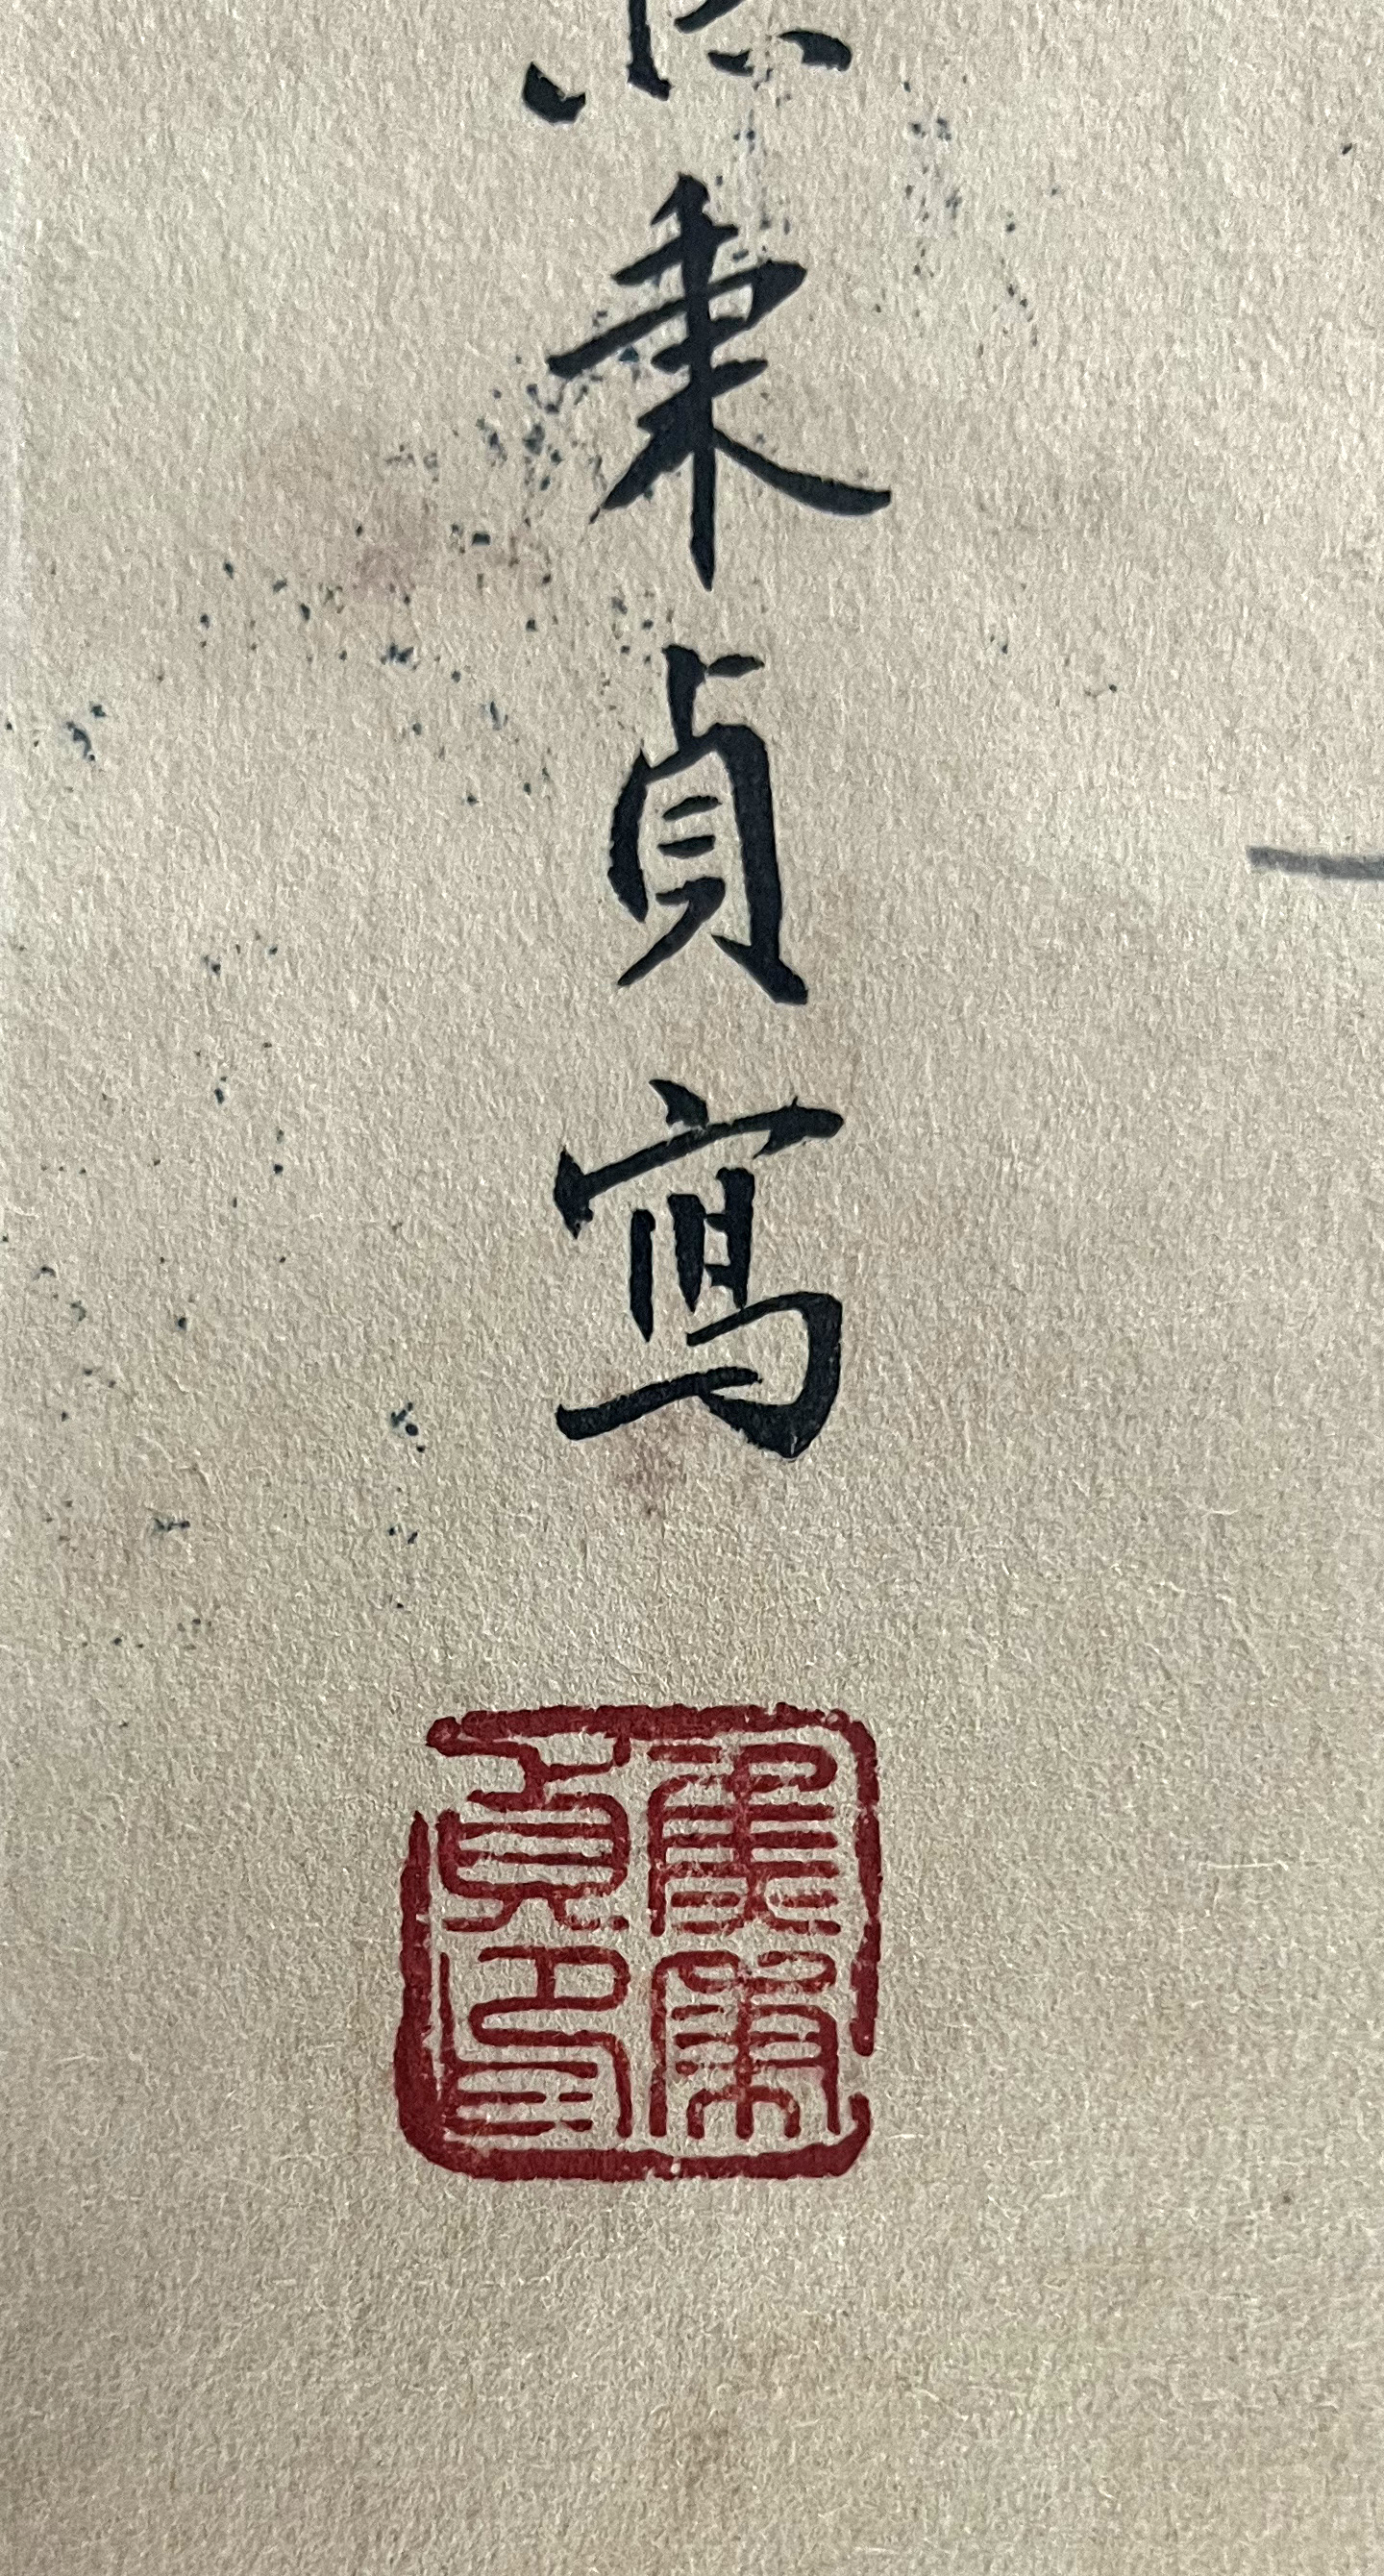 秉貞寫
焦秉
貞印